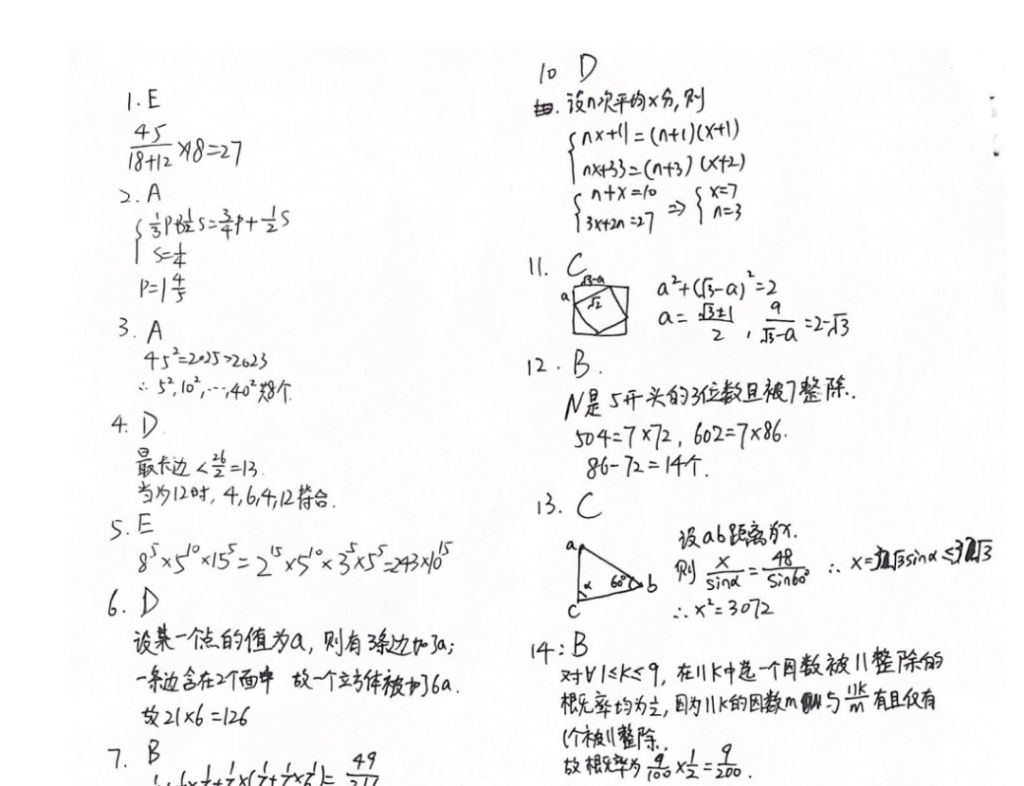 1. E
45/(18+12) ×18=27
2. A
{ 1/3 P+ 1/2 S= 3/4 P+ 1/2 S
S=1/4
P=1 4/5
3. A
45²=2025>2023
∴ 5², 10², ⋯, 40² 共8个.
4. D.
最长边 < 26/2 =13.
当为12时, 4,6,4,12 符合.
5. E
8⁵×5¹⁰×15⁵=2¹⁵×5¹⁰×3⁵×5⁵=243×10¹⁵
6. D
设某一个点的值为a, 则有3条边加3a;
一条边含在2个面中 故一个立方体被加了6a.
故21×6=126
7. B
49
10 D
设n次平均x分, 则
{ nx+11=(n+1)(x+1)
nx+33=(n+3)(x+2)
{ n+x=10
3x+2n=27 ⇒ { x=7
n=3
11. C
√3-a
a √2
a²+(√3-a)²=2
a= (√3±1)/2 , a/(√3-a) =2-√3
12. B.
N是5开头的3位数且被7整除.
504=7×72, 602=7×86.
86-72=14个.
13. C
设ab距离为x.
a α 60° b c
则 x/sinα = 48/sin60° ∴ x=32√3sinα≤32√3
∴ x²=3072
14: B
对∀1≤K≤9, 在11K中选一个因数被11整除的
概率均为½, 因为11K的因数m与 11K/m 有且仅有
1个被11整除.
故概率为 9/100 × 1/2 = 9/200 .